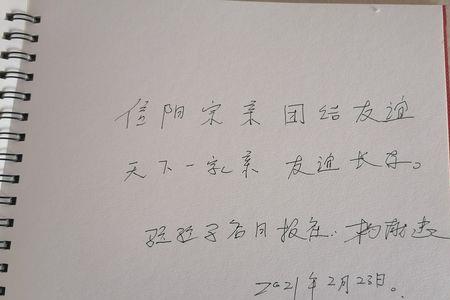 信阳宗亲 团结友谊
天下一家亲 友谊长存。
日报社
2021年2月23日。